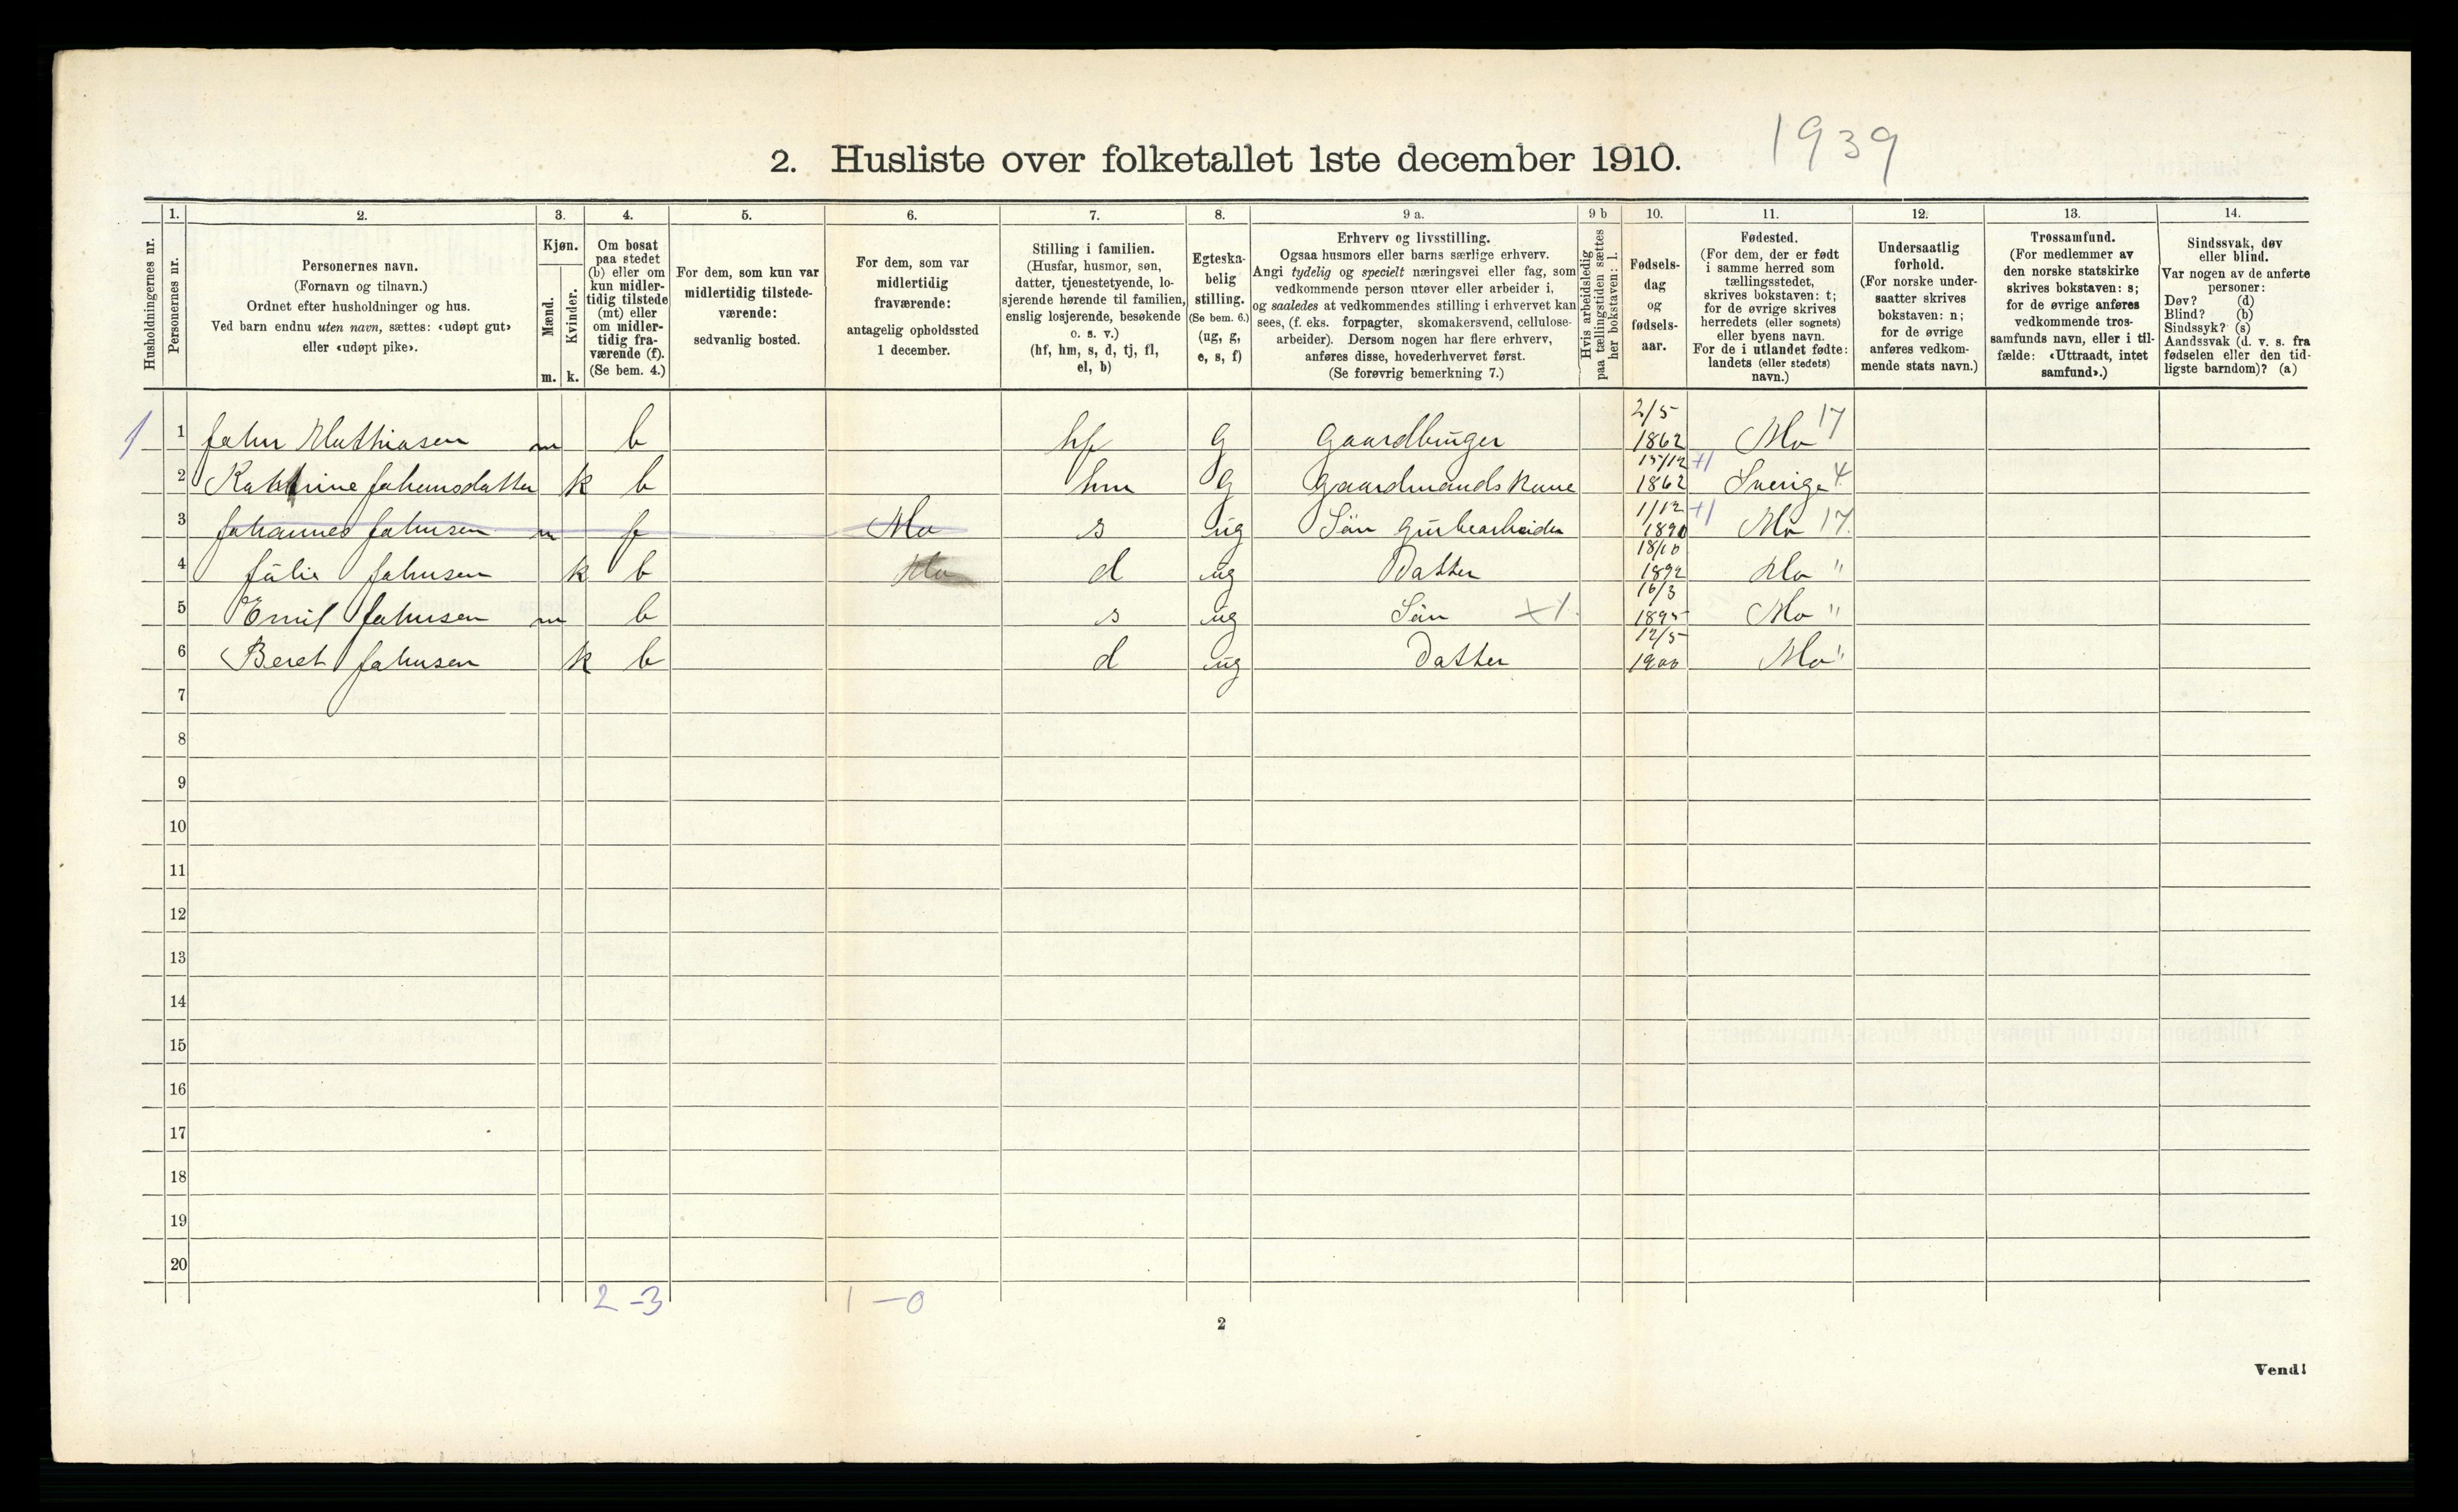 1939
2. Husliste over folketallet 1ste december 1910.
Husholdningernes nr.
1.
Personernes nr.
2.
Personernes navn.
(Fornavn og tilnavn.)
Ordnet efter husholdninger og hus.
Ved barn endnu uten navn, sættes: «udøpt gut»
eller «udøpt pike».
3.
Kjøn.
Mænd.
Kvinder.
m. k.
4.
Om bosat
paa stedet
(b) eller om
kun midler-
tidig tilstede
(mt) eller
om midler-
tidig fra-
værende (f).
(Se bem. 4.)
5.
For dem, som kun var
midlertidig tilstede-
værende:
sedvanlig bosted.
6.
For dem, som var
midlertidig
fraværende:
antagelig opholdssted
1 december.
7.
Stilling i familien.
(Husfar, husmor, søn,
datter, tjenestetyende, lo-
sjerende hørende til familien,
enslig losjerende, besøkende
o. s. v.)
(hf, hm, s, d, tj, fl,
el, b)
8.
Egteska-
belig
stilling.
(Se bem. 6.)
(ug, g,
e, s, f)
9 a.
Erhverv og livsstilling.
Ogsaa husmors eller barns særlige erhverv.
Angi tydelig og specielt næringsvei eller fag, som
vedkommende person utøver eller arbeider i,
og saaledes at vedkommendes stilling i erhvervet kan
sees, (f. eks. forpagter, skomakersvend, cellulose-
arbeider). Dersom nogen har flere erhverv,
anføres disse, hovederhvervet først.
(Se forøvrig bemerkning 7.)
9 b
Hvis arbeidsledig
paa tællingstiden sættes
her bokstaven: l.
10.
Fødsels-
dag
og
fødsels-
aar.
11.
Fødested.
(For dem, der er født
i samme herred som
tællingsstedet,
skrives bokstaven: t;
for de øvrige skrives
herredets (eller sognets)
eller byens navn.
For de i utlandet fødte:
landets (eller stedets)
navn.)
12.
Undersaatlig
forhold.
(For norske under-
saatter skrives
bokstaven: n;
for de øvrige
anføres vedkom-
mende stats navn.)
13.
Trossamfund.
(For medlemmer av
den norske statskirke
skrives bokstaven: s;
for de øvrige anføres
vedkommende tros-
samfunds navn, eller i til-
fælde: «Uttraadt, intet
samfund».)
14.
Sindssvak, døv
eller blind.
Var nogen av de anførte
personer:
Døv? (d)
Blind? (b)
Sindssyk? (s)
Aandssvak (d. v. s. fra
fødselen eller den tid-
ligste barndom)? (a)
1 1 John Mathiasen m b hf g Gaardbruger 2/5 1862 Mo 17
2 Kathrine Johansdatter k b hm g Gaardmands Kone 15/12 1862 +1 Sverige 4.
3 Johannes Johnsen m f Mo s ug Sön 1/12 1890 +1 Mo 17.
4 Julie Johnsen k b Mo d ug Datter 18/10 1892 Mo "
5 Emil Johnsen m b s ug Sön 16/3 1895 Mo "
6 Beret Johnsen k b d ug Datter 12/5 1900 Mo "
7
8
9
10
11
12
13
14
15
16
17
18
19
20
2 - 3 1 - 0
2
Vend!